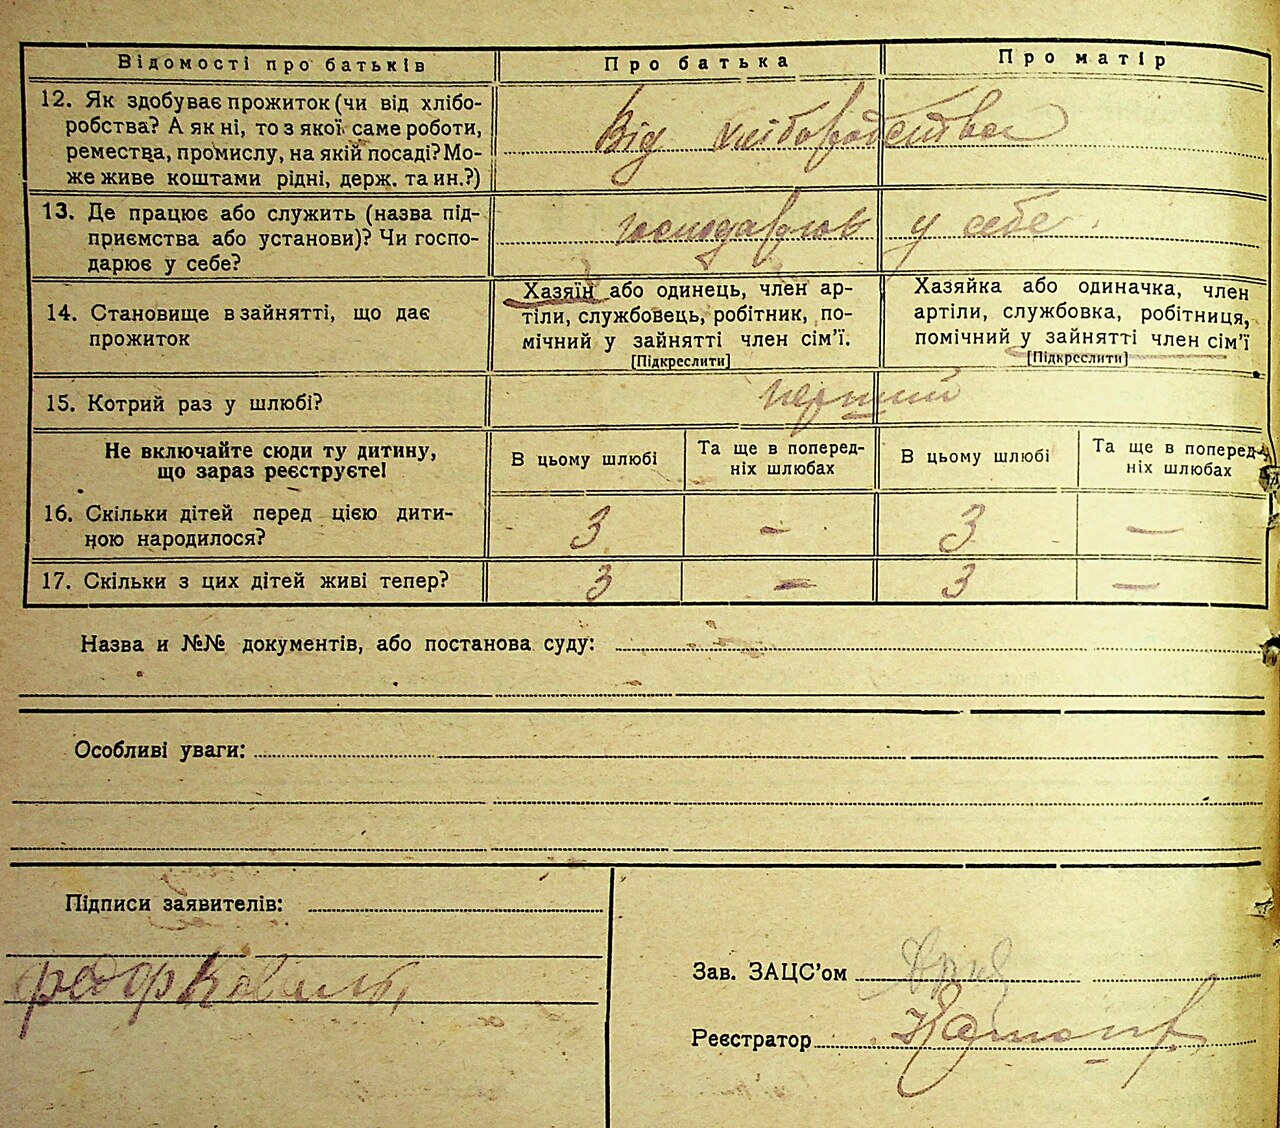 Відомості про батьків Про батька Про матір
12. Як здобуває прожиток (чи від хлібо-
робства? А як ні, то з якої саме роботи,
ремества, промислу, на якій посаді? Мо-
же живе коштами рідні, держ. та ин.?)
Від хліборобства
13. Де працює або служить (назва під-
приємства або установи)? Чи госпо-
дарює у себе?
у себе
14. Становище в зайнятті, що дає
прожиток
Хазяїн або одинець, член ар-
тіли, службовець, робітник, по-
мічний у зайнятті член сім’ї.
[Підкреслити]
Хазяйка або одиначка, член
артіли, службовка, робітниця,
помічний у зайнятті член сім’ї
[Підкреслити]
15. Котрий раз у шлюбі?
перший
Не включайте сюди ту дитину,
що зараз реєструєте!
В цьому шлюбі
Та ще в поперед-
ніх шлюбах
В цьому шлюбі
Та ще в поперед-
ніх шлюбах
16. Скільки дітей перед цією дити-
ною народилося?
3 — 3 —
17. Скільки з цих дітей живі тепер? 3 — 3 —
Назва и №№ документів, або постанова суду:
Особливі уваги:
Підписи заявителів:
федор Коваль
Зав. ЗАЦС’ом
Реєстратор